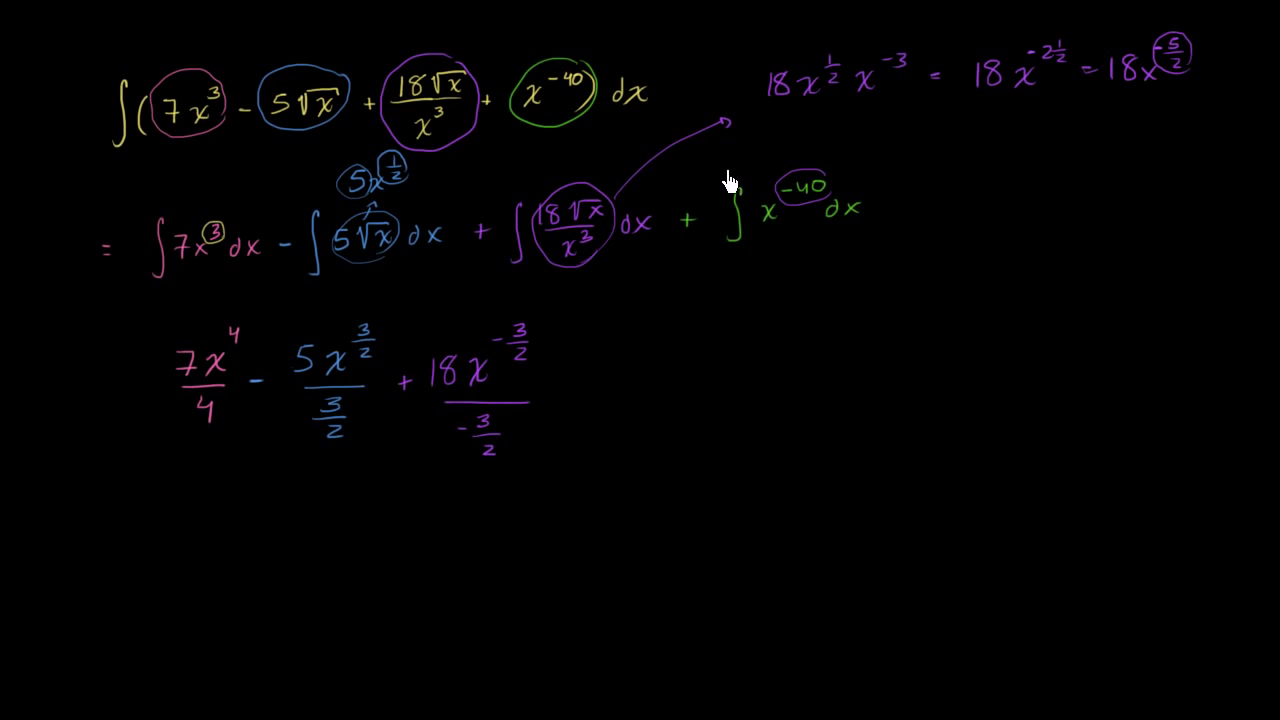 ∫(7x³ - 5√x + 18√x/x³ + x⁻⁴⁰) dx
18x^(1/2) x⁻³ = 18x^(-2 1/2) = 18x^(-5/2)
5x^(1/2)
= ∫7x³ dx - ∫5√x dx + ∫18√x/x³ dx + ∫x⁻⁴⁰ dx
7x⁴/4 - 5x^(3/2)/(3/2) + 18x^(-3/2)/(-3/2)